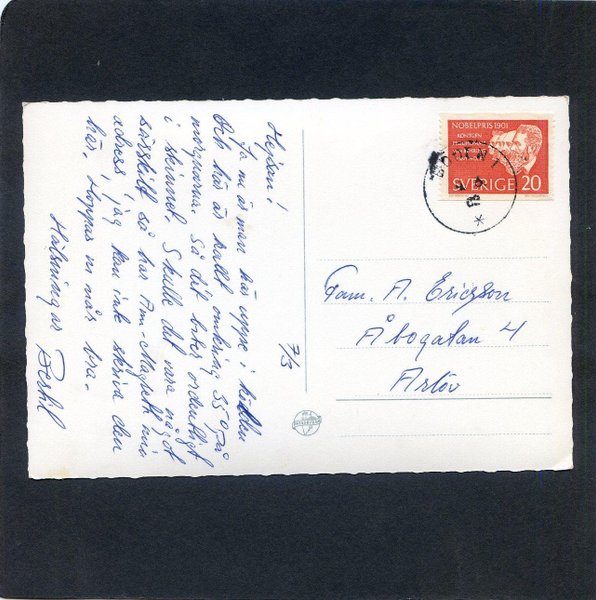 Hejsan! 7/3
Ja nu är man här uppe i kölden
Och här är kallt omkring 35 grd
morgnarna. Så det biter ordentligt
i skinnet. Skulle det vara något
särskilt så har Ann-Magrett min
adress, jag kan inte skriva den
här. Hoppas ni mår bra.
Hälsningar
Bertil
NOBELPRIS 1901
RÖNTGEN
SVERIGE 20
BODEN 1
Fam. A. Ericson
Åbogatan 4
Arlöv